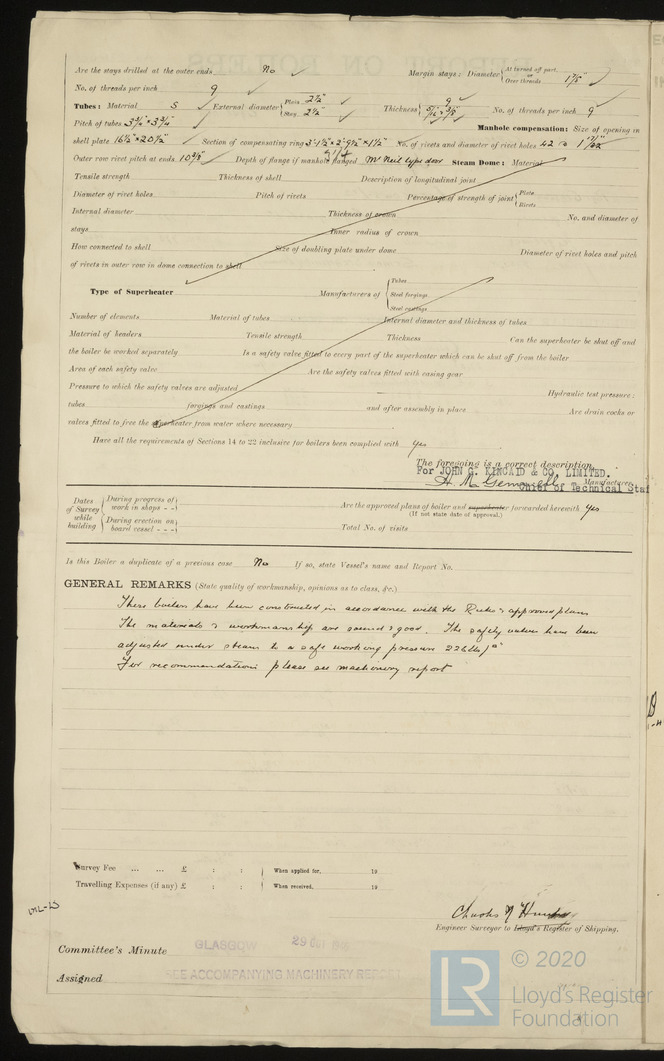 Are the stays drilled at the outer ends No Margin stays: Diameter { At turned off part, Over threads 1 7/8"
No. of threads per inch 9
Tubes: Material S External diameter { Plain 2½" Stay 2½" Thickness { 9 5/16" & 3/8" No. of threads per inch 9
Pitch of tubes 3¾" x 3¾" Manhole compensation: Size of opening in
shell plate 16½" x 20½" Section of compensating ring No. of rivets and diameter of rivet holes 42
Outer row rivet pitch at ends 10 Depth of flange if manhole flanged McNeil type door Steam Dome: Material
Tensile strength Thickness of shell Description of longitudinal joint
Diameter of rivet holes Pitch of rivets Percentage of strength of joint { Plate Rivets
Internal diameter Thickness of crown No. and diameter of
stays Inner radius of crown
How connected to shell Size of doubling plate under dome Diameter of rivet holes and pitch
of rivets in outer row in dome connection to shell
Type of Superheater Manufacturers of { Tubes Steel forgings Steel castings
Number of elements Material of tubes Internal diameter and thickness of tubes
Material of headers Tensile strength Thickness Can the superheater be shut off and
the boiler be worked separately Is a safety valve fitted to every part of the superheater which can be shut off from the boiler
Area of each safety valve Are the safety valves fitted with easing gear
Pressure to which the safety valves are adjusted Hydraulic test pressure:
tubes forgings and castings and after assembly in place Are drain cocks or
valves fitted to free the superheater from water where necessary
Have all the requirements of Sections 14 to 22 inclusive for boilers been complied with Yes
The foregoing is a correct description,
For JOHN G. KINCAID & CO. LIMITED.
Manufacturer.
Chief of Technical Staf
Dates of Survey while building { During progress of work in shops - - During erection on board vessel - - - Are the approved plans of boiler and superheater forwarded herewith Yes
(If not state date of approval.)
Total No. of visits
Is this Boiler a duplicate of a previous case No If so, state Vessel's name and Report No.
GENERAL REMARKS (State quality of workmanship, opinions as to class, &c.)
These boilers have been constructed in accordance with the Rules & approved plans
The materials & workmanship are sound & good. The safety valves have been
adjusted under steam to a safe working pressure 226 lbs/□"
For recommendation please see machinery report
Survey Fee ... ... £ : : When applied for, 19
Travelling Expenses (if any) £ : : When received, 19
Engineer Surveyor to Lloyd's Register of Shipping.
Committee's Minute GLASGOW 29 OCT
Assigned SEE ACCOMPANYING MACHINERY REPORT
© 2020
LR Lloyd's Register
Foundation